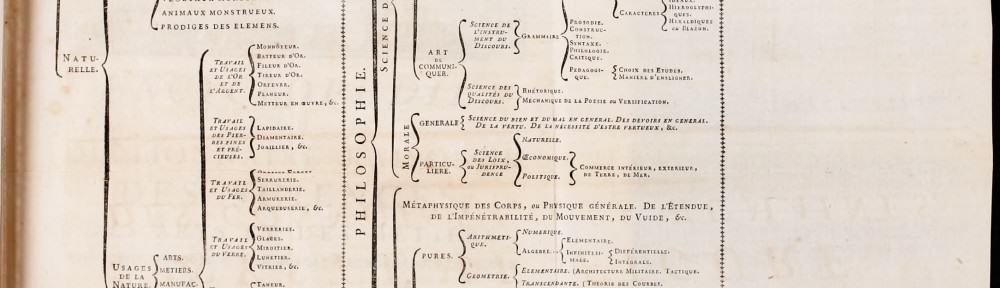 ANIMAUX MONSTRUEUX.
PRODIGES DES ELEMENS.
NATU-
RELLE.
TRAVAIL
ET USAGES
DE L'OR
ET DE
L'ARGENT.
MONNOYEUR.
BATTEUR D'OR.
FILEUR D'OR.
TIREUR D'OR.
ORFEVRE.
PLANEUR.
METTEUR EN ŒUVRE, &c.
TRAVAIL
ET USAGES
DES PIER-
RES FINES
ET PRÉ-
CIEUSES.
LAPIDAIRE.
DIAMENTAIRE.
JOAILLIER, &c.
TRAVAIL
ET USAGES
DU FER.
SERRURERIE.
TAILLANDERIE.
ARMURERIE.
ARQUEBUSERIE, &c.
TRAVAIL
ET USAGES
DU VERRE.
VERRERIES.
GLACES.
MIROITIER.
LUNETIER.
VITRIER, &c.
USAGES
DE LA
NATURE.
ARTS.
METIERS.
MANUFAC-
TANEUR.
PHILOSOPHIE.
SCIENCE D
ART
DE COMMUNI-
QUER.
SCIENCE DE
L'INSTRU-
MENT DU
DISCOURS.
GRAMMAIRE
CARACTERES
HIEROGLYPHI-
QUES.
HERALDIQUES
ou BLAZON.
PROSODIE.
CONSTRUC-
TION.
SYNTAXE.
PHILOLOGIE.
CRITIQUE.
PEDAGOGI-
QUE.
CHOIX DES ETUDES.
MANIERE D'ENSEIGNER.
SCIENCE DES
QUALITÉS DU
DISCOURS.
RHÉTORIQUE.
MECHANIQUE DE LA POESIE ou VERSIFICATION.
MORALE
GENERALE
SCIENCE DU BIEN ET DU MAL EN GENERAL. DES DEVOIRS EN GENERAL.
DE LA VERTU. DE LA NÉCESSITÉ D'ESTRE VERTUEUX, &c.
PARTICU-
LIERE.
SCIENCE
DES LOIX,
ou JURISPRU-
DENCE
NATURELLE.
ŒCONOMIQUE.
POLITIQUE.
COMMERCE INTÉRIEUR, EXTERIEUR,
DE TERRE, DE MER.
MÉTAPHYSIQUE DES CORPS, ou PHYSIQUE GÉNÉRALE. DE L'ÉTENDUE,
DE L'IMPÉNÉTRABILITÉ, DU MOUVEMENT, DU VUIDE, &c.
PURES.
ARITHMETI-
QUE.
NUMERIQUE.
ALGEBRE.
ELEMENTAIRE.
INFINITESI-
MALE.
DIFFÉRENTIELLE.
INTÉGRALE.
GEOMETRIE.
ELEMENTAIRE. (ARCHITECTURE MILITAIRE. TACTIQUE.
TRANSCENDANTE. (THEORIE DES COURBES.